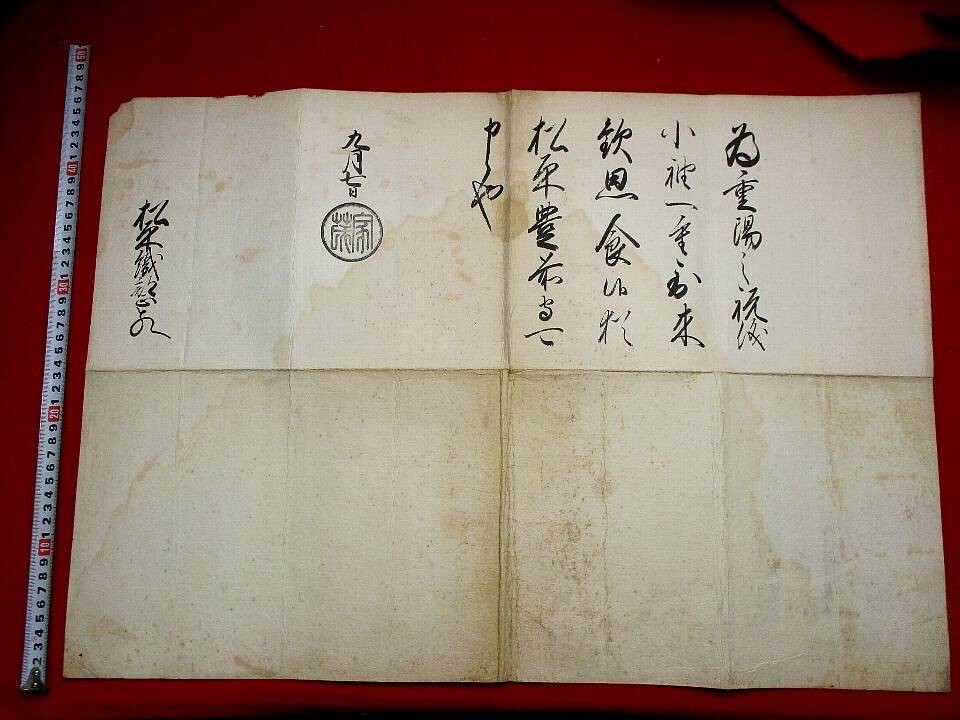 為重陽之祝儀
小袖一重到来
歓思食候猶
松平豊前守可
申候也
九月七日
家茂
松平織部